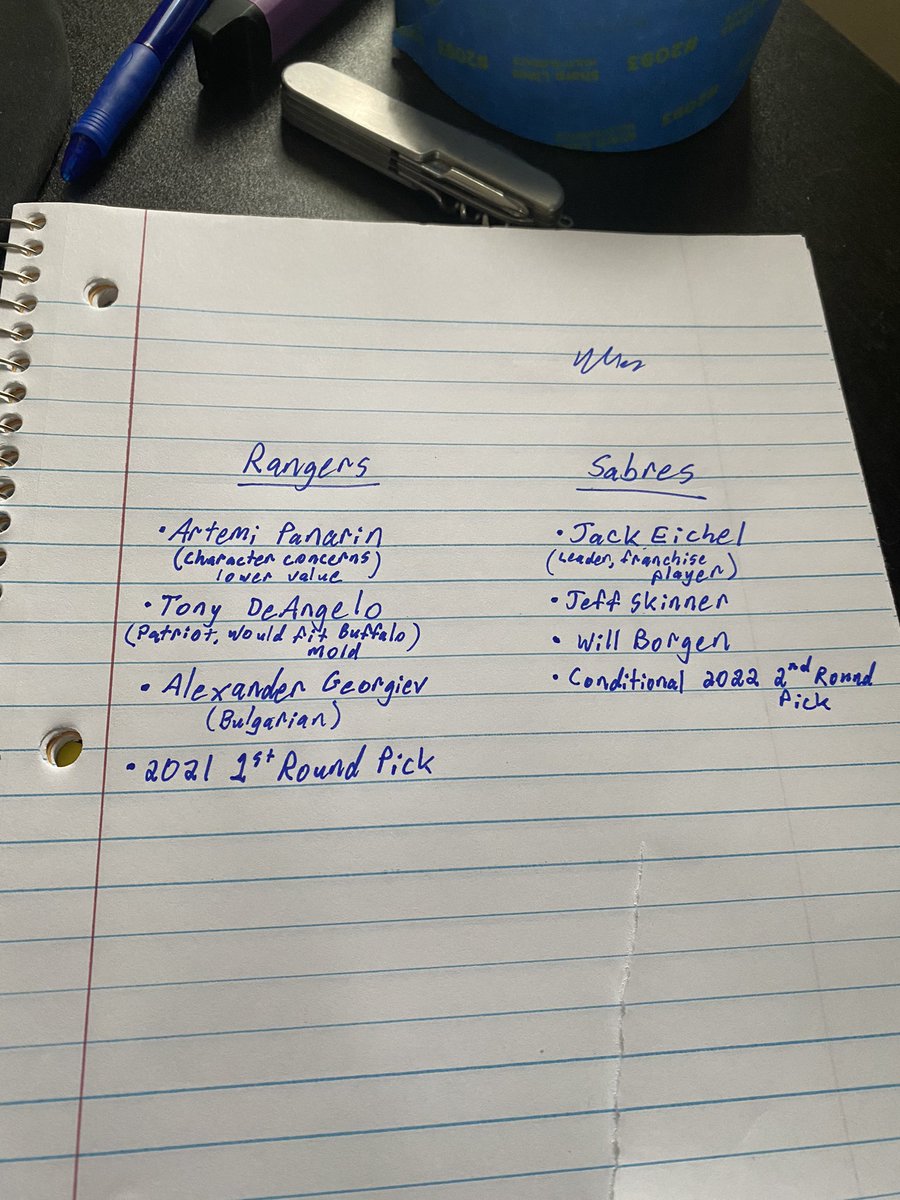 #2093
Sharp Lines
#2093
#2093
Rangers
• Artemi Panarin
(Character concerns)
lower value
• Tony DeAngelo
(Patriot, would fit Buffalo)
mold
• Alexander Georgiev
(Bulgarian)
• 2021 1st Round Pick
Sabres
• Jack Eichel
(Leader, franchise
player)
• Jeff Skinner
• Will Borgen
• Conditional 2022 2nd Round
Pick